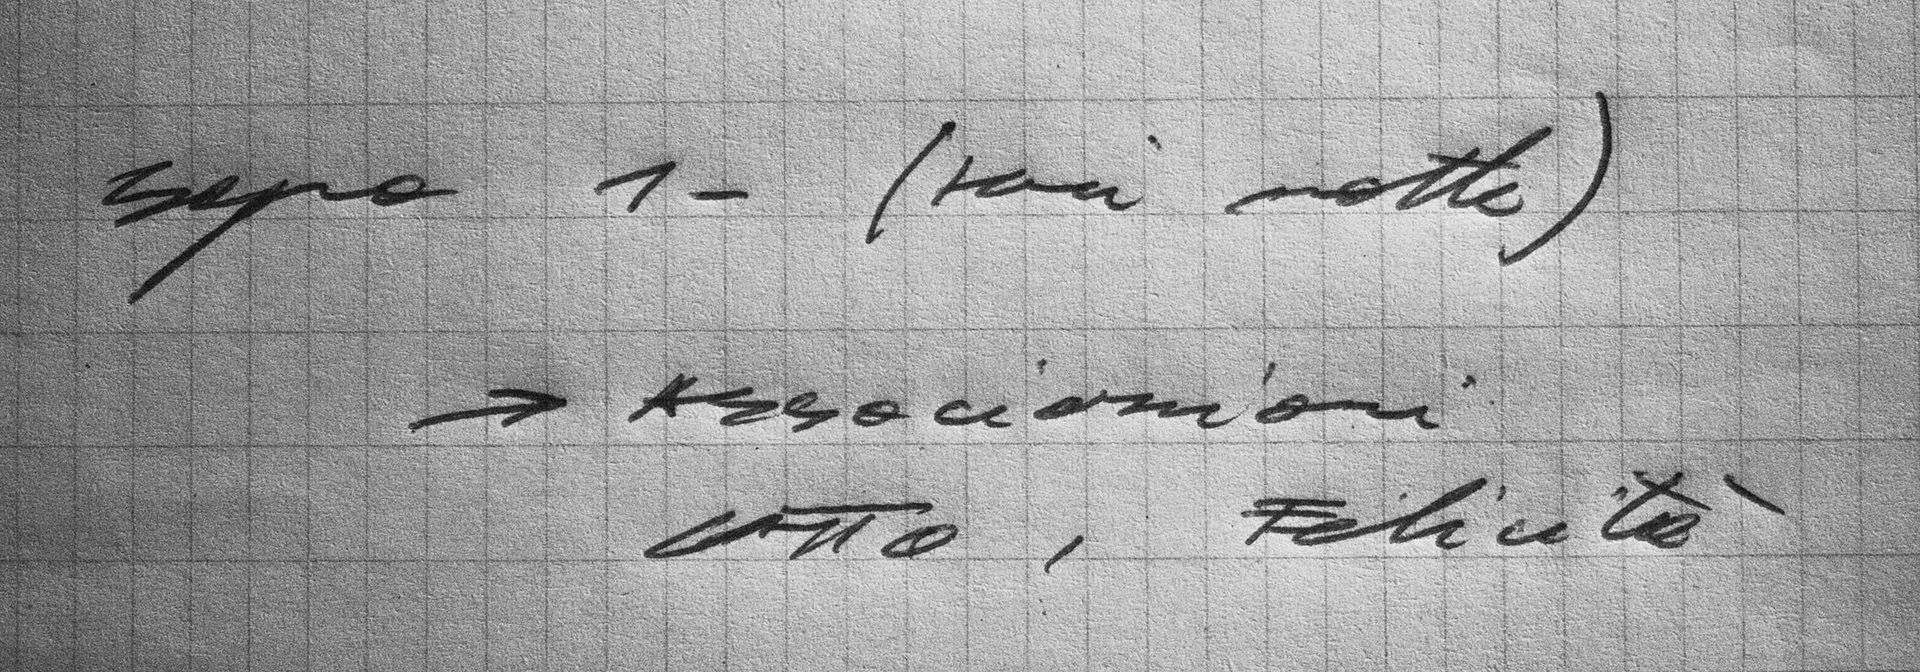 sogno 1 - (ieri notte)
→ Associazioni
LUTTO, Felicità